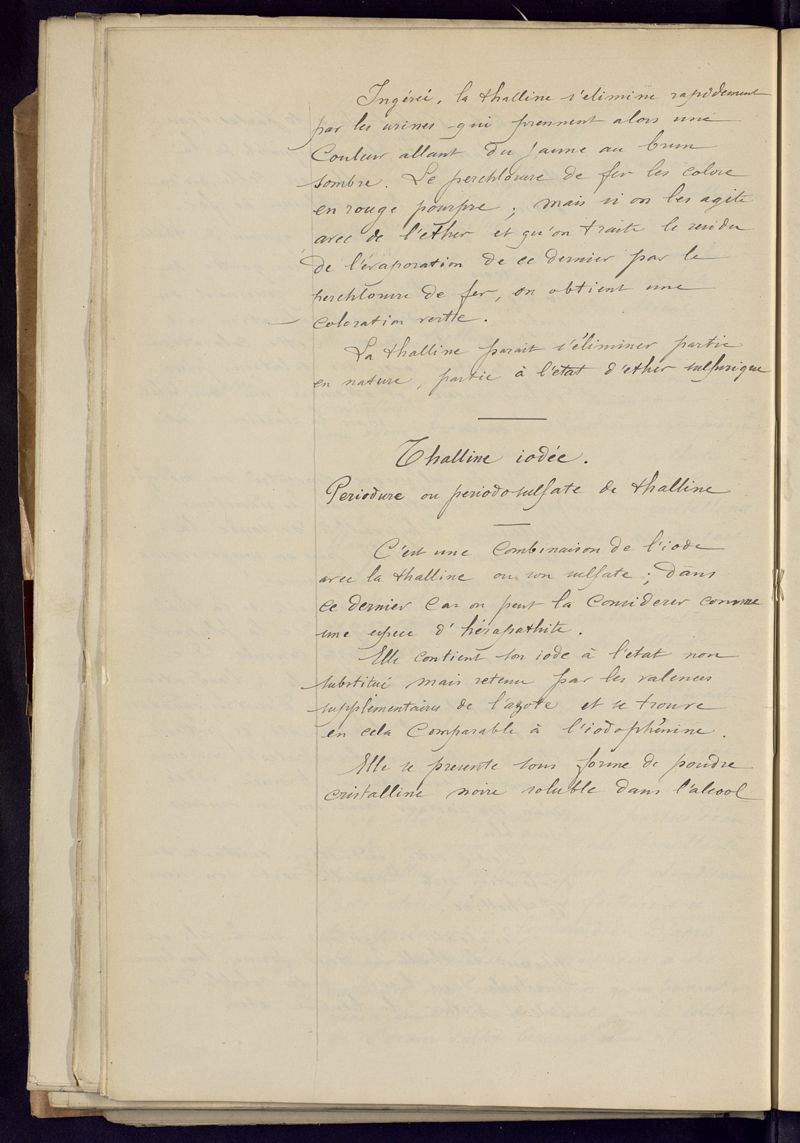 Ingérée, la thalline s'elimine rapidement
par les urines qui prennent alors une
Couleur allant du jaune au brun
sombre. Le perchlorure de fer les colore
en rouge pourpre ; mais si on les agite
avec de l'ether et qu'on traite le residu
de l'évaporation de ce dernier par le
perchlorure de fer, on obtient une
coloration verte.
La thalline parait s'éliminer partie
en nature, partie à l'état d'ether sulfurique
Thalline iodée.
Periodure ou periodosulfate de thalline
C'est une Combinaison de l'iode
avec la thalline ou son sulfate ; dans
ce dernier Cas on peut la Considerer comme
une espece d'hérapathite.
Elle contient son iode à l'etat non
substitué mais retenu par les valences
supplémentaires de l'azote et se trouve
en cela Comparable à l'iodophénine.
Elle se presente sous forme de poudre
cristalline noire soluble dans l'alcool